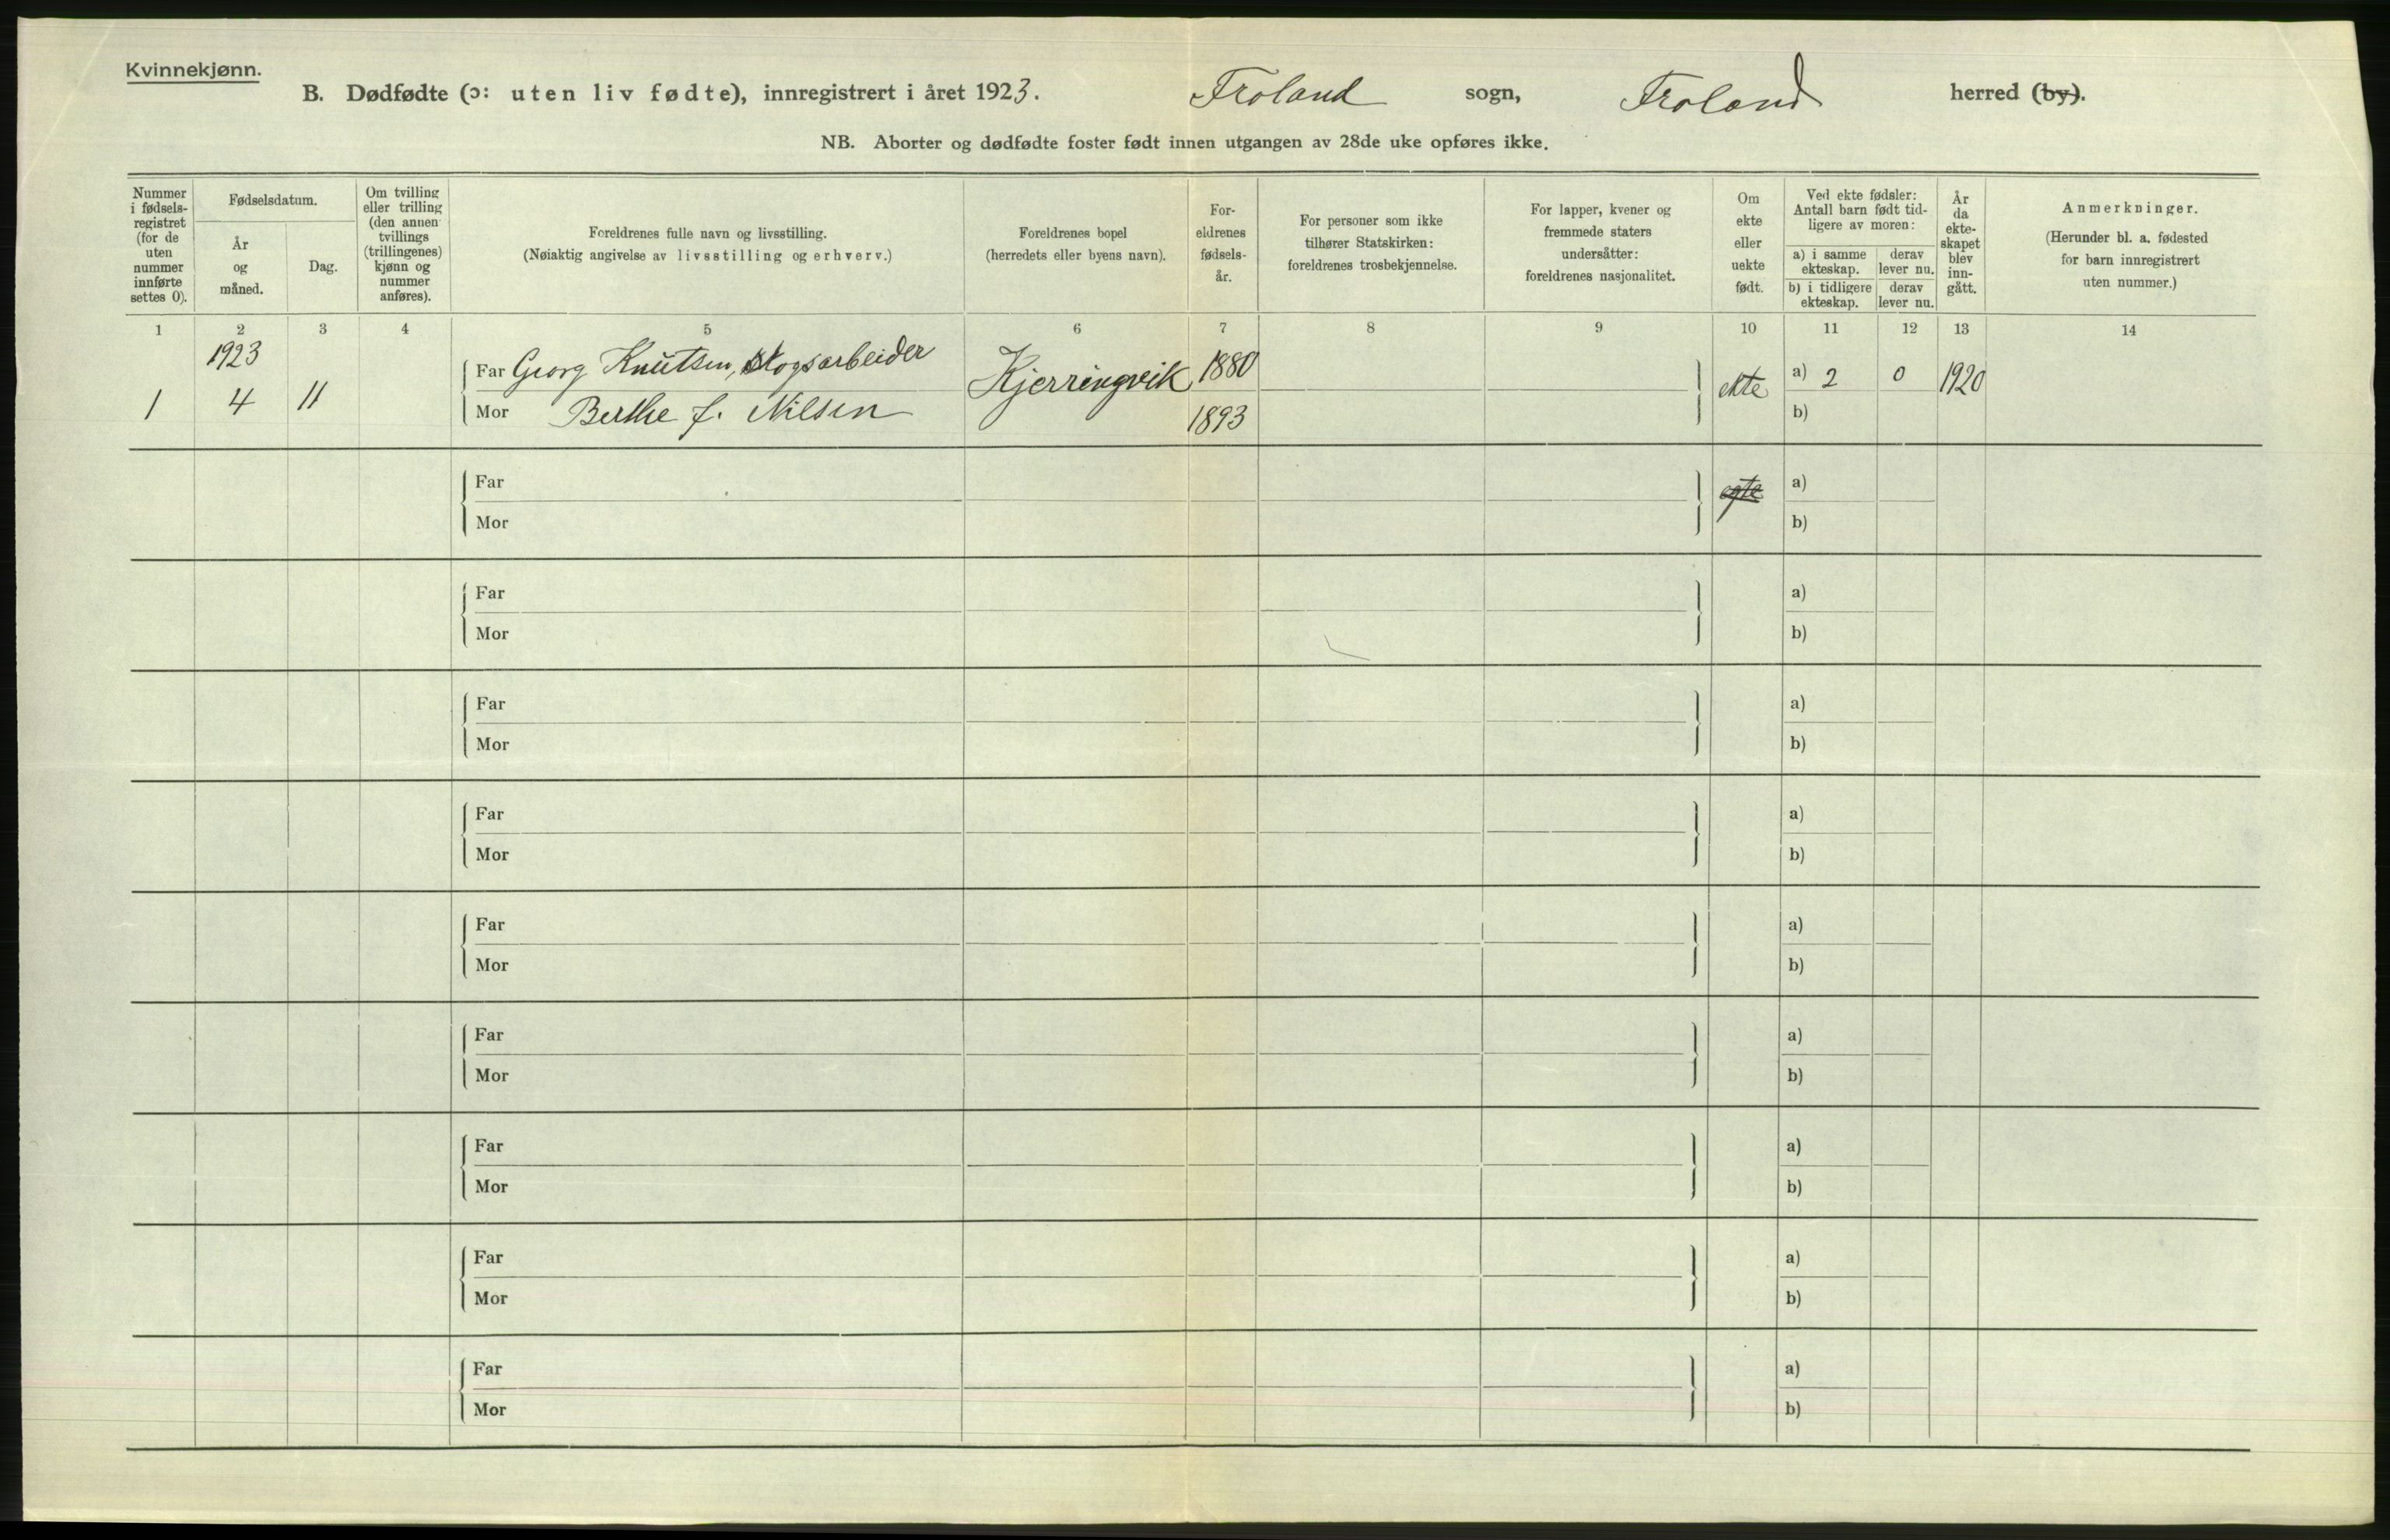 Kvinnekjønn.
B. Dødfødte (ɔ: uten liv fødte), innregistrert i året 1923. Froland sogn, Froland herred (by).
NB. Aborter og dødfødte foster født innen utgangen av 28de uke opføres ikke.
Nummer i fødsels-registret (for de uten nummer innførte settes 0).
Fødselsdatum.
År og måned.
Dag.
Om tvilling eller trilling (den annen tvillings (trillingenes) kjønn og nummer anføres).
Foreldrenes fulle navn og livsstilling.
(Nøiaktig angivelse av livsstilling og erhverv.)
Foreldrenes bopel
(herredets eller byens navn).
For-eldrenes fødsels-år.
For personer som ikke tilhører Statskirken: foreldrenes trosbekjennelse.
For lapper, kvener og fremmede staters undersåtter: foreldrenes nasjonalitet.
Om ekte eller uekte født.
Ved ekte fødsler: Antall barn født tid-ligere av moren:
a) i samme ekteskap.
derav lever nu.
b) i tidligere ekteskap.
derav lever nu.
År da ekte-skapet blev inn-gått.
Anmerkninger.
(Herunder bl. a. fødested for barn innregistrert uten nummer.)
1 2 3 4 5 6 7 8 9 10 11 12 13 14
1923
Far Georg Knutsen, skogsarbeider Kjerringvik 1880 ekte a) 2 0 1920
1 4 11 Mor Berthe J. Nilsen 1893 b)
Far egte a)
Mor b)
Far a)
Mor b)
Far a)
Mor b)
Far a)
Mor b)
Far a)
Mor b)
Far a)
Mor b)
Far a)
Mor b)
Far a)
Mor b)
Far a)
Mor b)